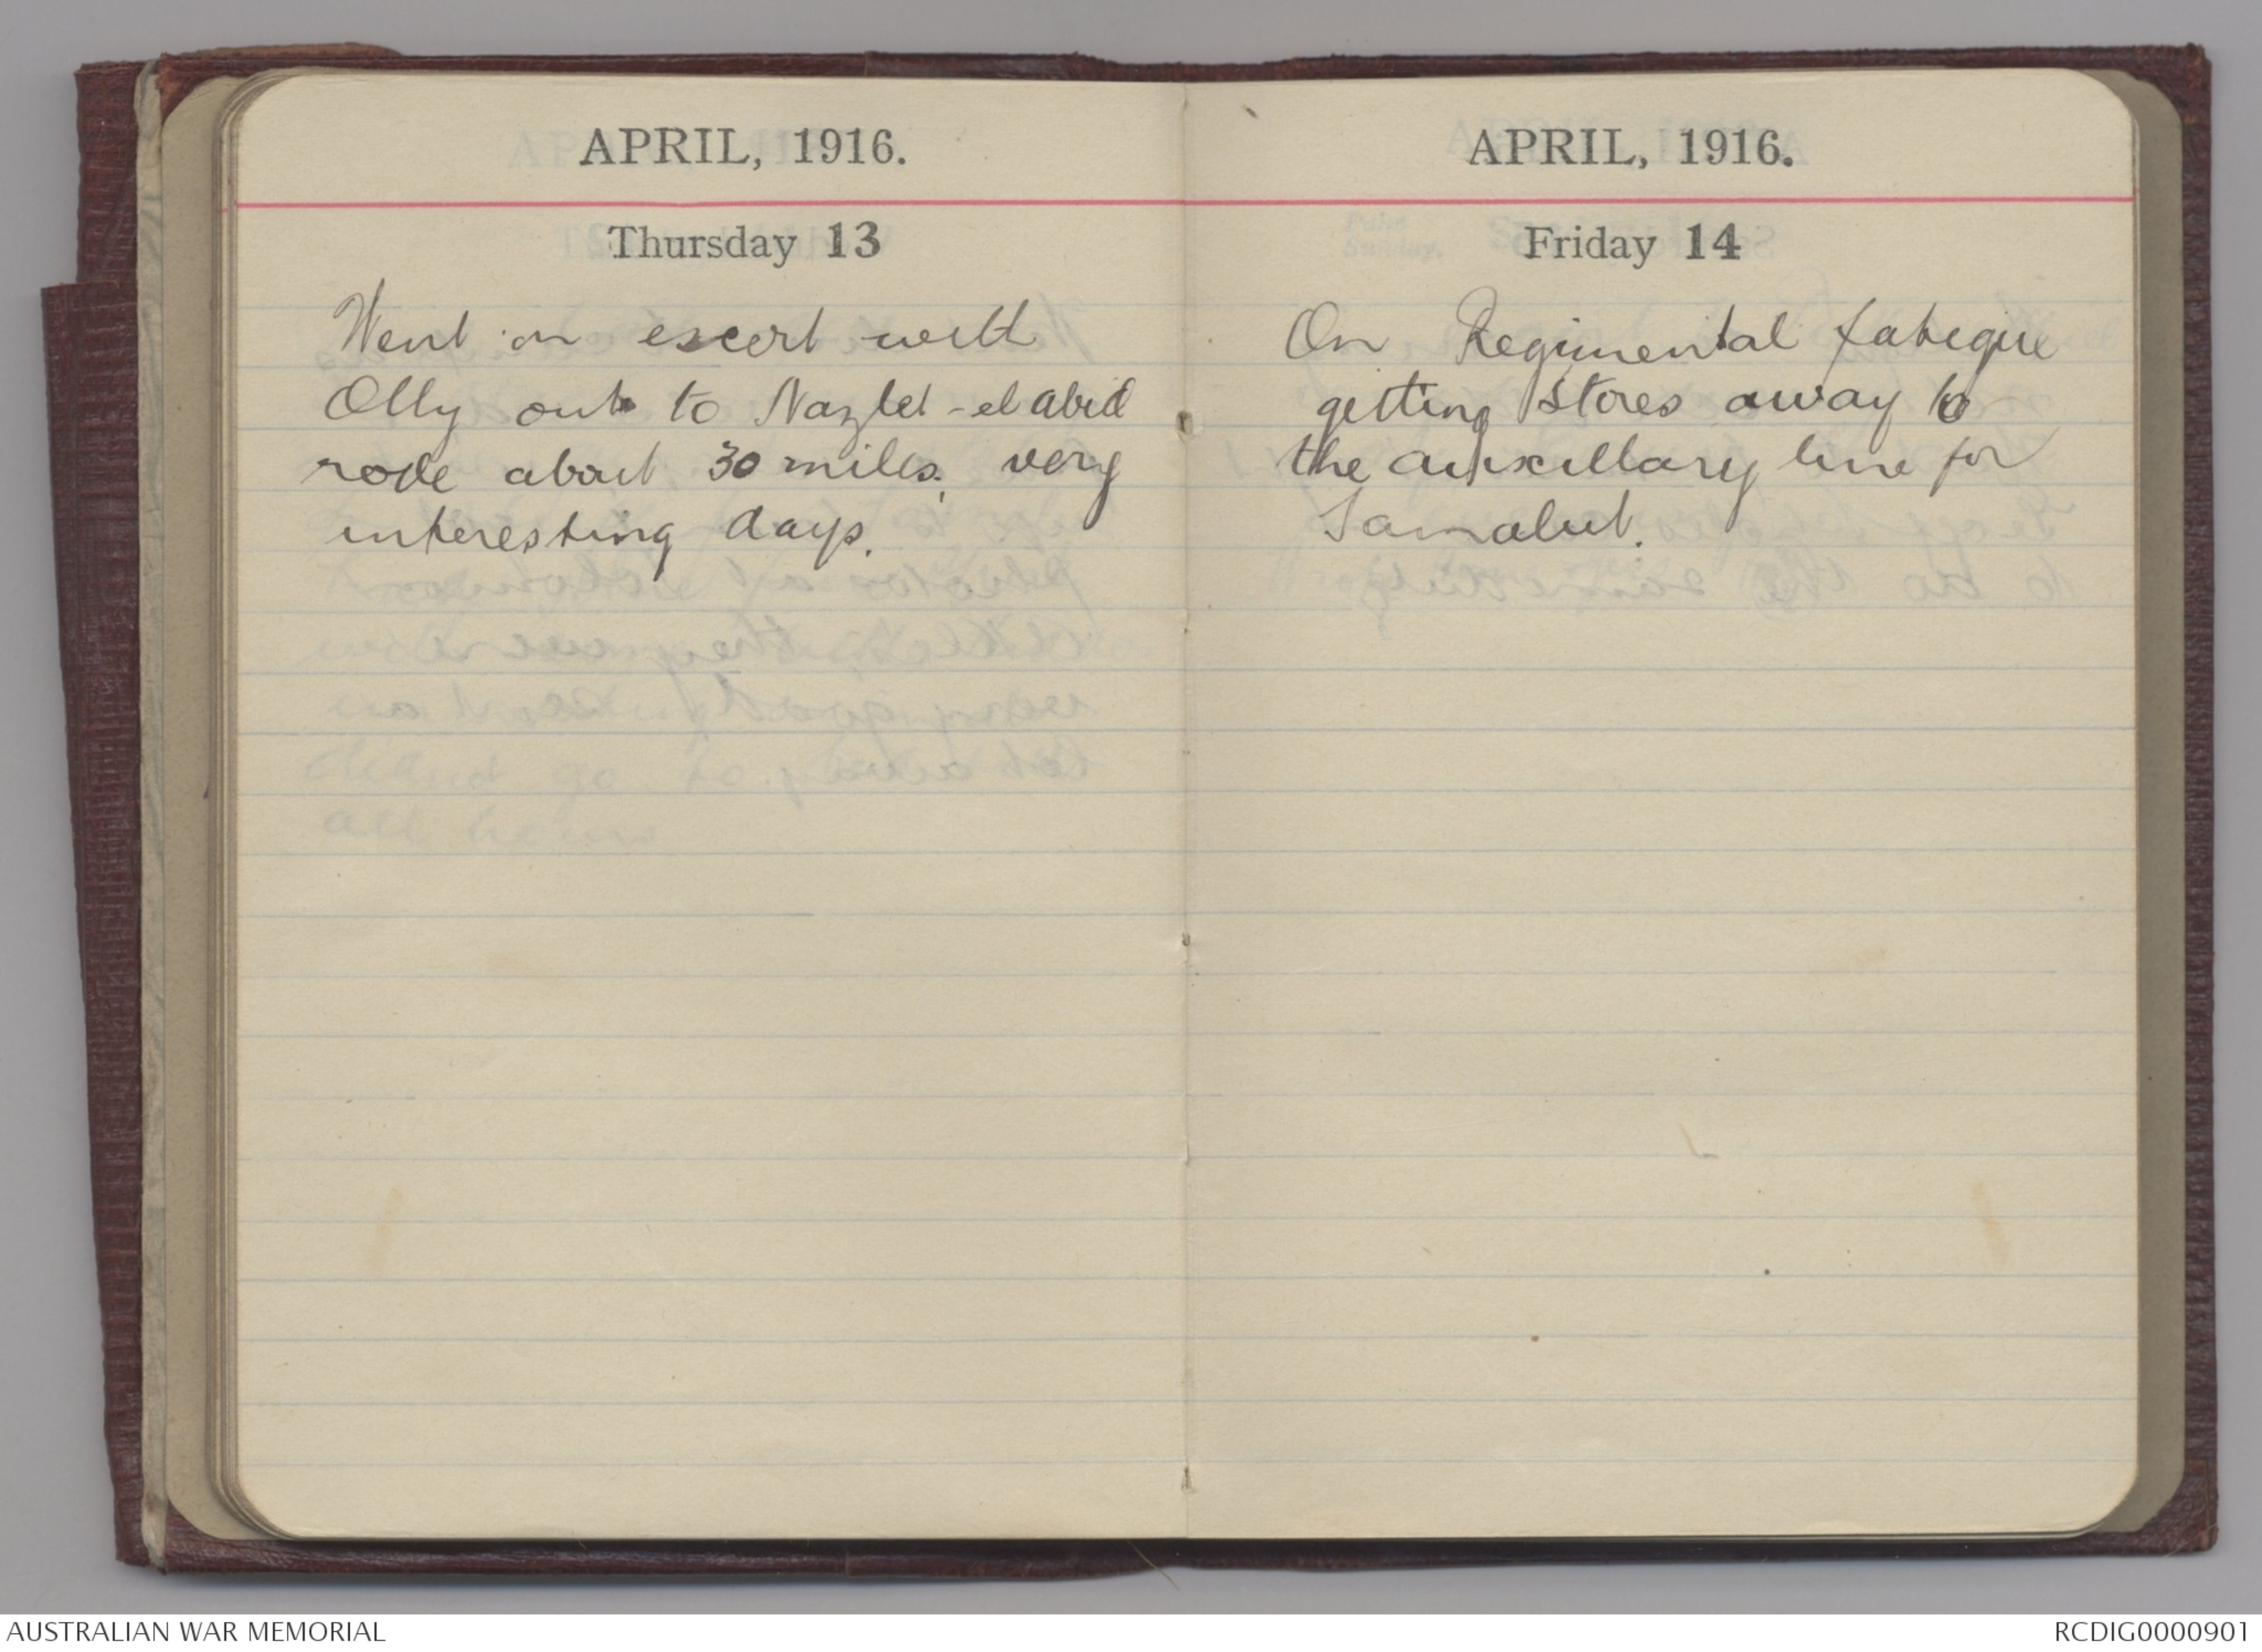 APRIL, 1916.
Thursday 13
Went on escort with
Olly out to Nazlet-el abid
rode about 30 miles, very
interesting days.
APRIL, 1916.
Friday 14
On Regimental fatigue
getting stores away to
the auxillary line for
Samalut.
AUSTRALIAN WAR MEMORIAL
RCDIG0000901